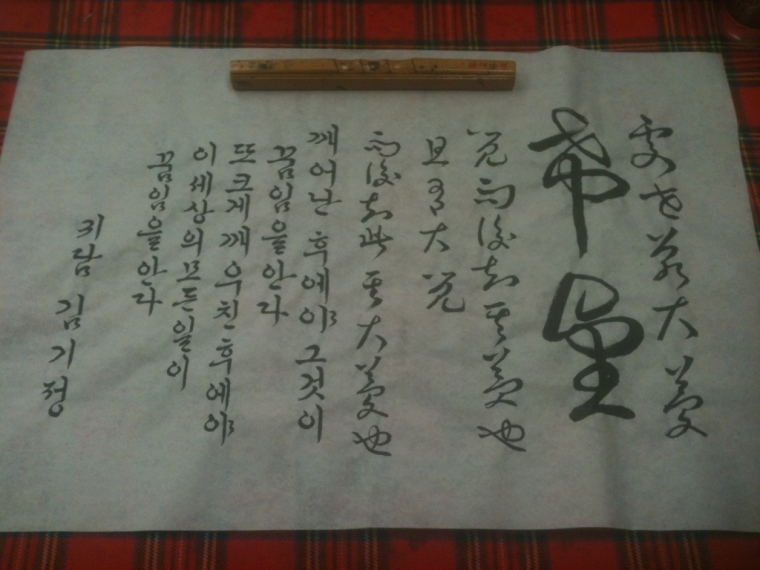 處世若大夢
希望
覺而後知其夢也
且有大覺
而後知此其大夢也
깨어난 후에야 그것이
꿈임을 안다
또 크게 깨우친 후에야
이 세상의 모든 일이
꿈임을 안다
김기정